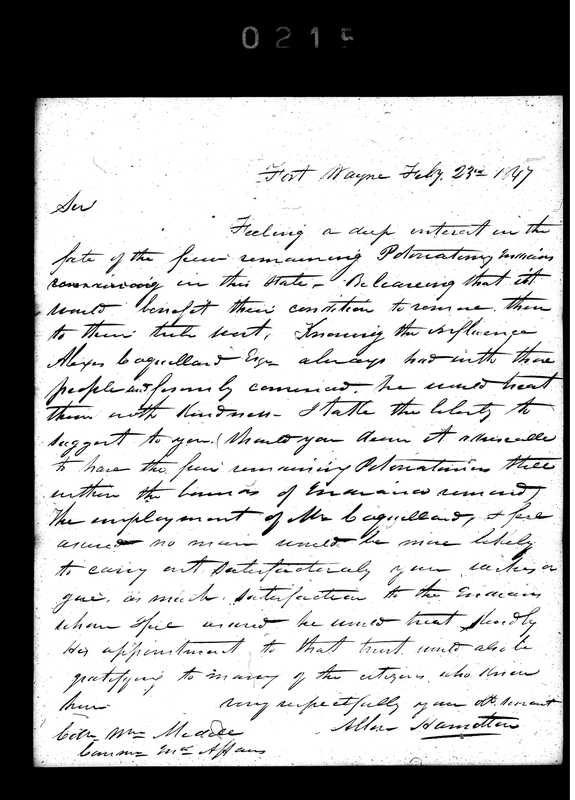 0215
Fort Wayne Feby. 23rd 1847
Sir
Feeling a deep interest in the
fate of the few remaining Potowatomy Indians
remaining in this state - Beleaving that it
would benefit their condition to remove them
to their tribe west, Knowing the influence
Alexis Coquellard Esqr always had with those
people and firmly convinced he would treat
them with Kindness - I take the liberty to
suggest to you (should you deem it advisable
to have the few remaining Potowatamies still
within the bounds of Indiana removed)
the employment of Mr Coquellard, I feel
assured no man would be more likely
to carry out satisfactoraly your wishes or
give as much satisfaction to the Indians
whom I feel assured he would treat kindly
His appointment to that trust would also be
gratifying to many of the citizens who know
him very respectfully your obt. servant
Allen Hamilton
Coln Wm Medill
Commr Ind Affairs